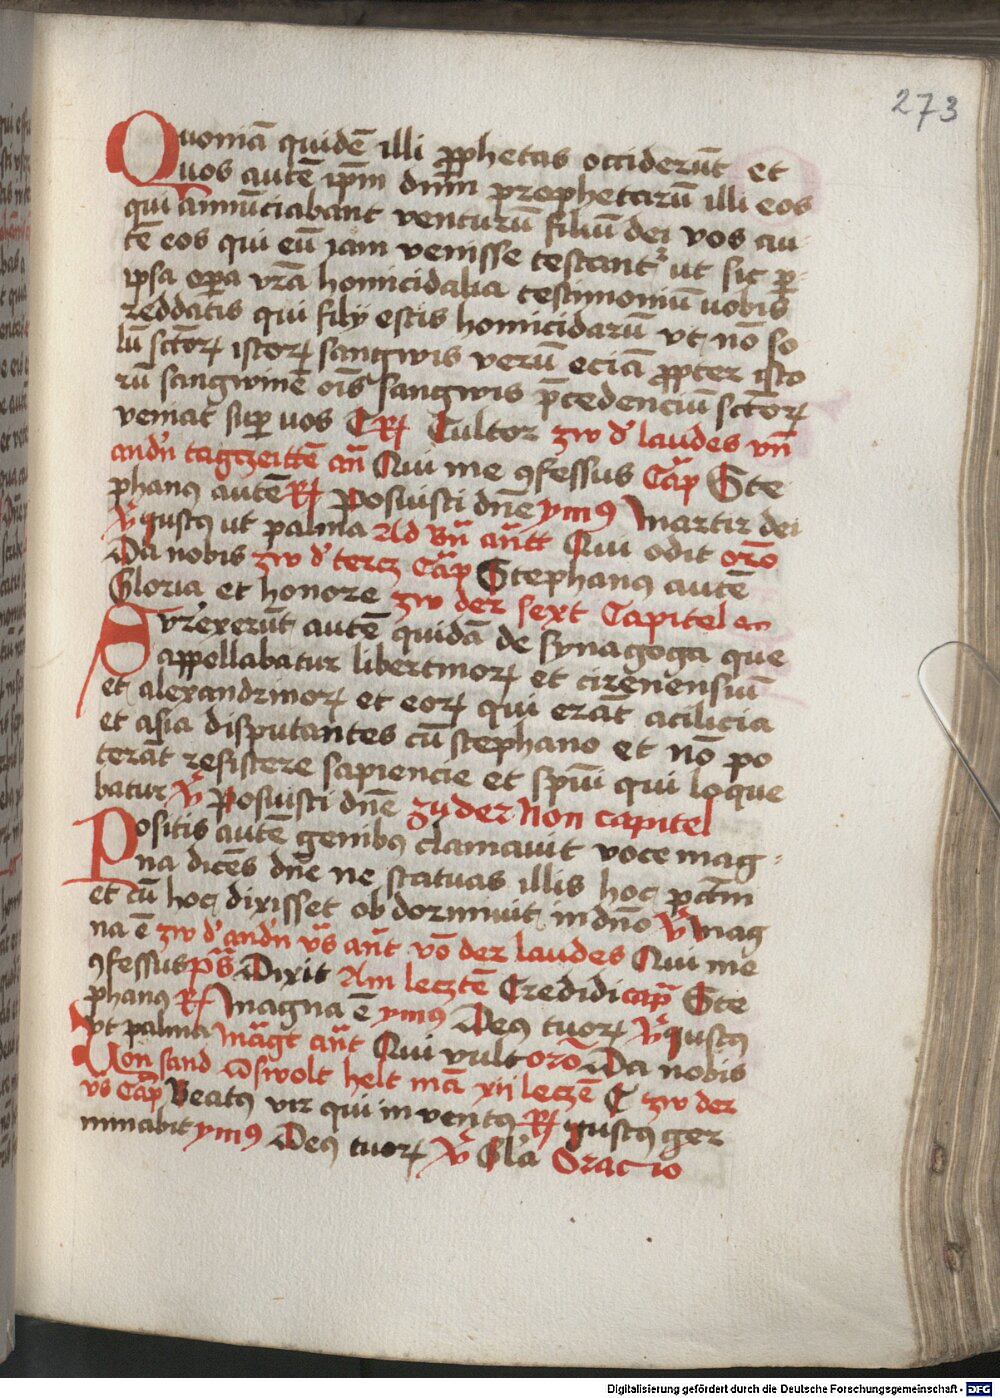 273
Quoniā quidē illi ꝓphetas occiderūt et
uos autē ip̄m dnm̄ prophetarū illi eos
qui annūciabant venturū filiū dei vos au-
tē eos qui eū jam venisse testant᷑ ut sic ꝑ-
ipsa oꝑa vr̄a homicidalia testimoniū uobis
reddatis qui filij estis homicidarū vt nō so
lū sctōrꝝ istorꝝ sangwis verū eciā ꝓpter isto
rū sangwinē oīs sangwis p̄cedenciū sctōrꝝ
veniat suꝑ uos Rꝝ Cultor zw d' laudes vn̄
andn̄ tagczeittē an̄ Qui me ꝯfessus Cap̄ Ste
phanꝯ autē Rꝝ Posuisti dn̄e ymꝯ Martir dei
v̄ iustꝯ ut palma Ad Bn̄ an̄tt Qui odit orō
Da nobis zw d' tercz Cap̄ Stephanꝯ autē
Gloria et honore zw der sext Capitel
Surrexerūt autē quidā de synagoga que
appellabatur libertinorꝝ et cirenensiū
et alexandrinorꝝ et eorꝝ qui erāt acilicia
et asia disputantes cū stephano et nō po
terāt resistere sapiencie et spiūi qui loque
batur v̄ Posuisti dn̄e zu der Non capitel
Positis autē genibꝯ clamauit voce mag-
na dicēs dn̄e ne statuas illis hoc pctm̄
et cū hoc dixisset obdormiuit in dn̄o v̄ Mag
na ē zw d' andn̄ vs̄ an̄t vō der laudes Qui me
ꝯfessus ps̄ Dixit Am leczten Credidi cap̄ Ste
phanꝯ Rꝝ Magna ē ymꝯ Deꝯ tuorꝝ v̄ iustꝯ
vt palma Mag̅t an̄t Qui vult orō Da nobis
Uon sand Oswolt helt mā xij leczē C zw der
vs̄ Cap̄ Beatꝯ vir qui inventꝯ Rꝝ iustꝯ ger
minabit ymꝯ Deꝯ tuorꝝ v̄ Glā Oracio
Digitalisierung gefördert durch die Deutsche Forschungsgemeinschaft - DFG